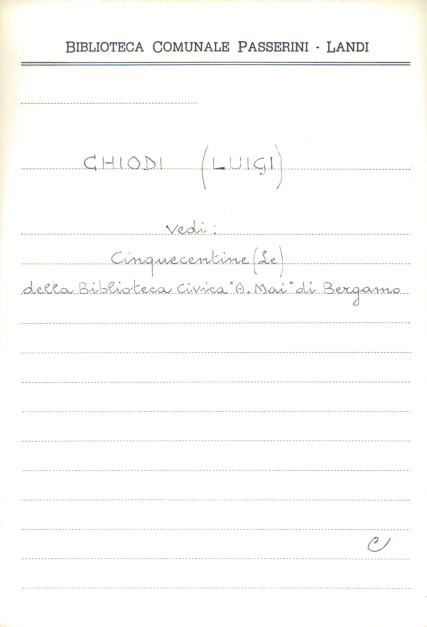 BIBLIOTECA COMUNALE PASSERINI - LANDI
CHIODI (LUIGI)
Vedi:
Cinquecentine (Le)
della Biblioteca Civica "A. Mai" di Bergamo
C